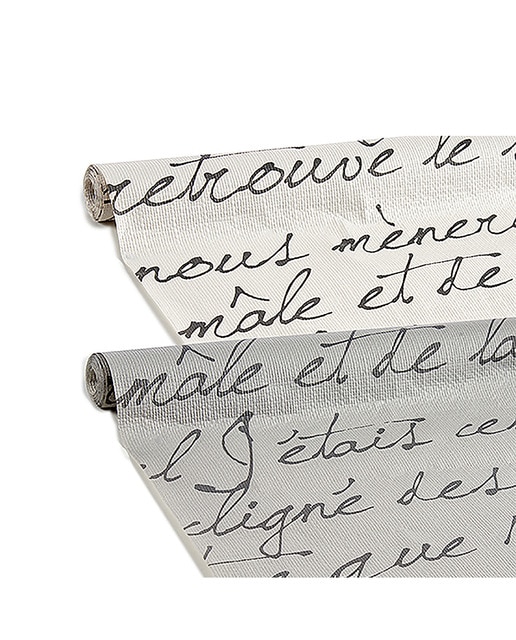 retrouvé le
nous mènera
mâle et de
mâle et de la
J'étais
ligné des
que